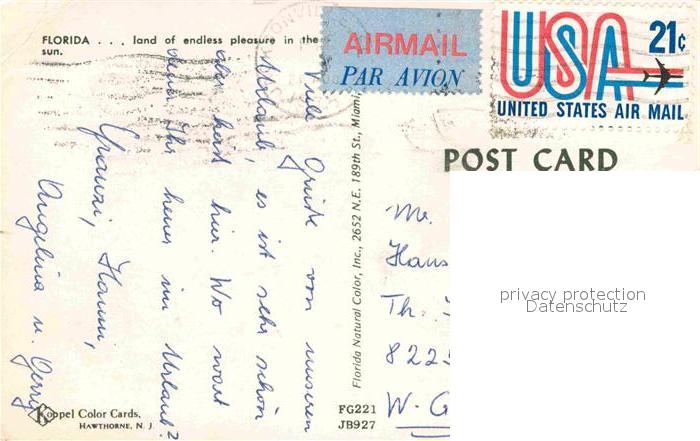 FLORIDA . . . land of endless pleasure in the
sun.
AIRMAIL
PAR AVION
USA 21c
UNITED STATES AIR MAIL
POST CARD
Viele Grüße von unserem
Urlaub, es ist sehr schön
hier. Wo wart
denn Ihr heuer im Urlaub?
Hanni,
Angelina u. Gerry
Florida Natural Color, Inc., 2652 N.E. 189th St., Miami,
Mr.
Hans
Th.
822
W. G
privacy protection
Datenschutz
Koppel Color Cards.
HAWTHORNE, N. J.
FG221
JB927